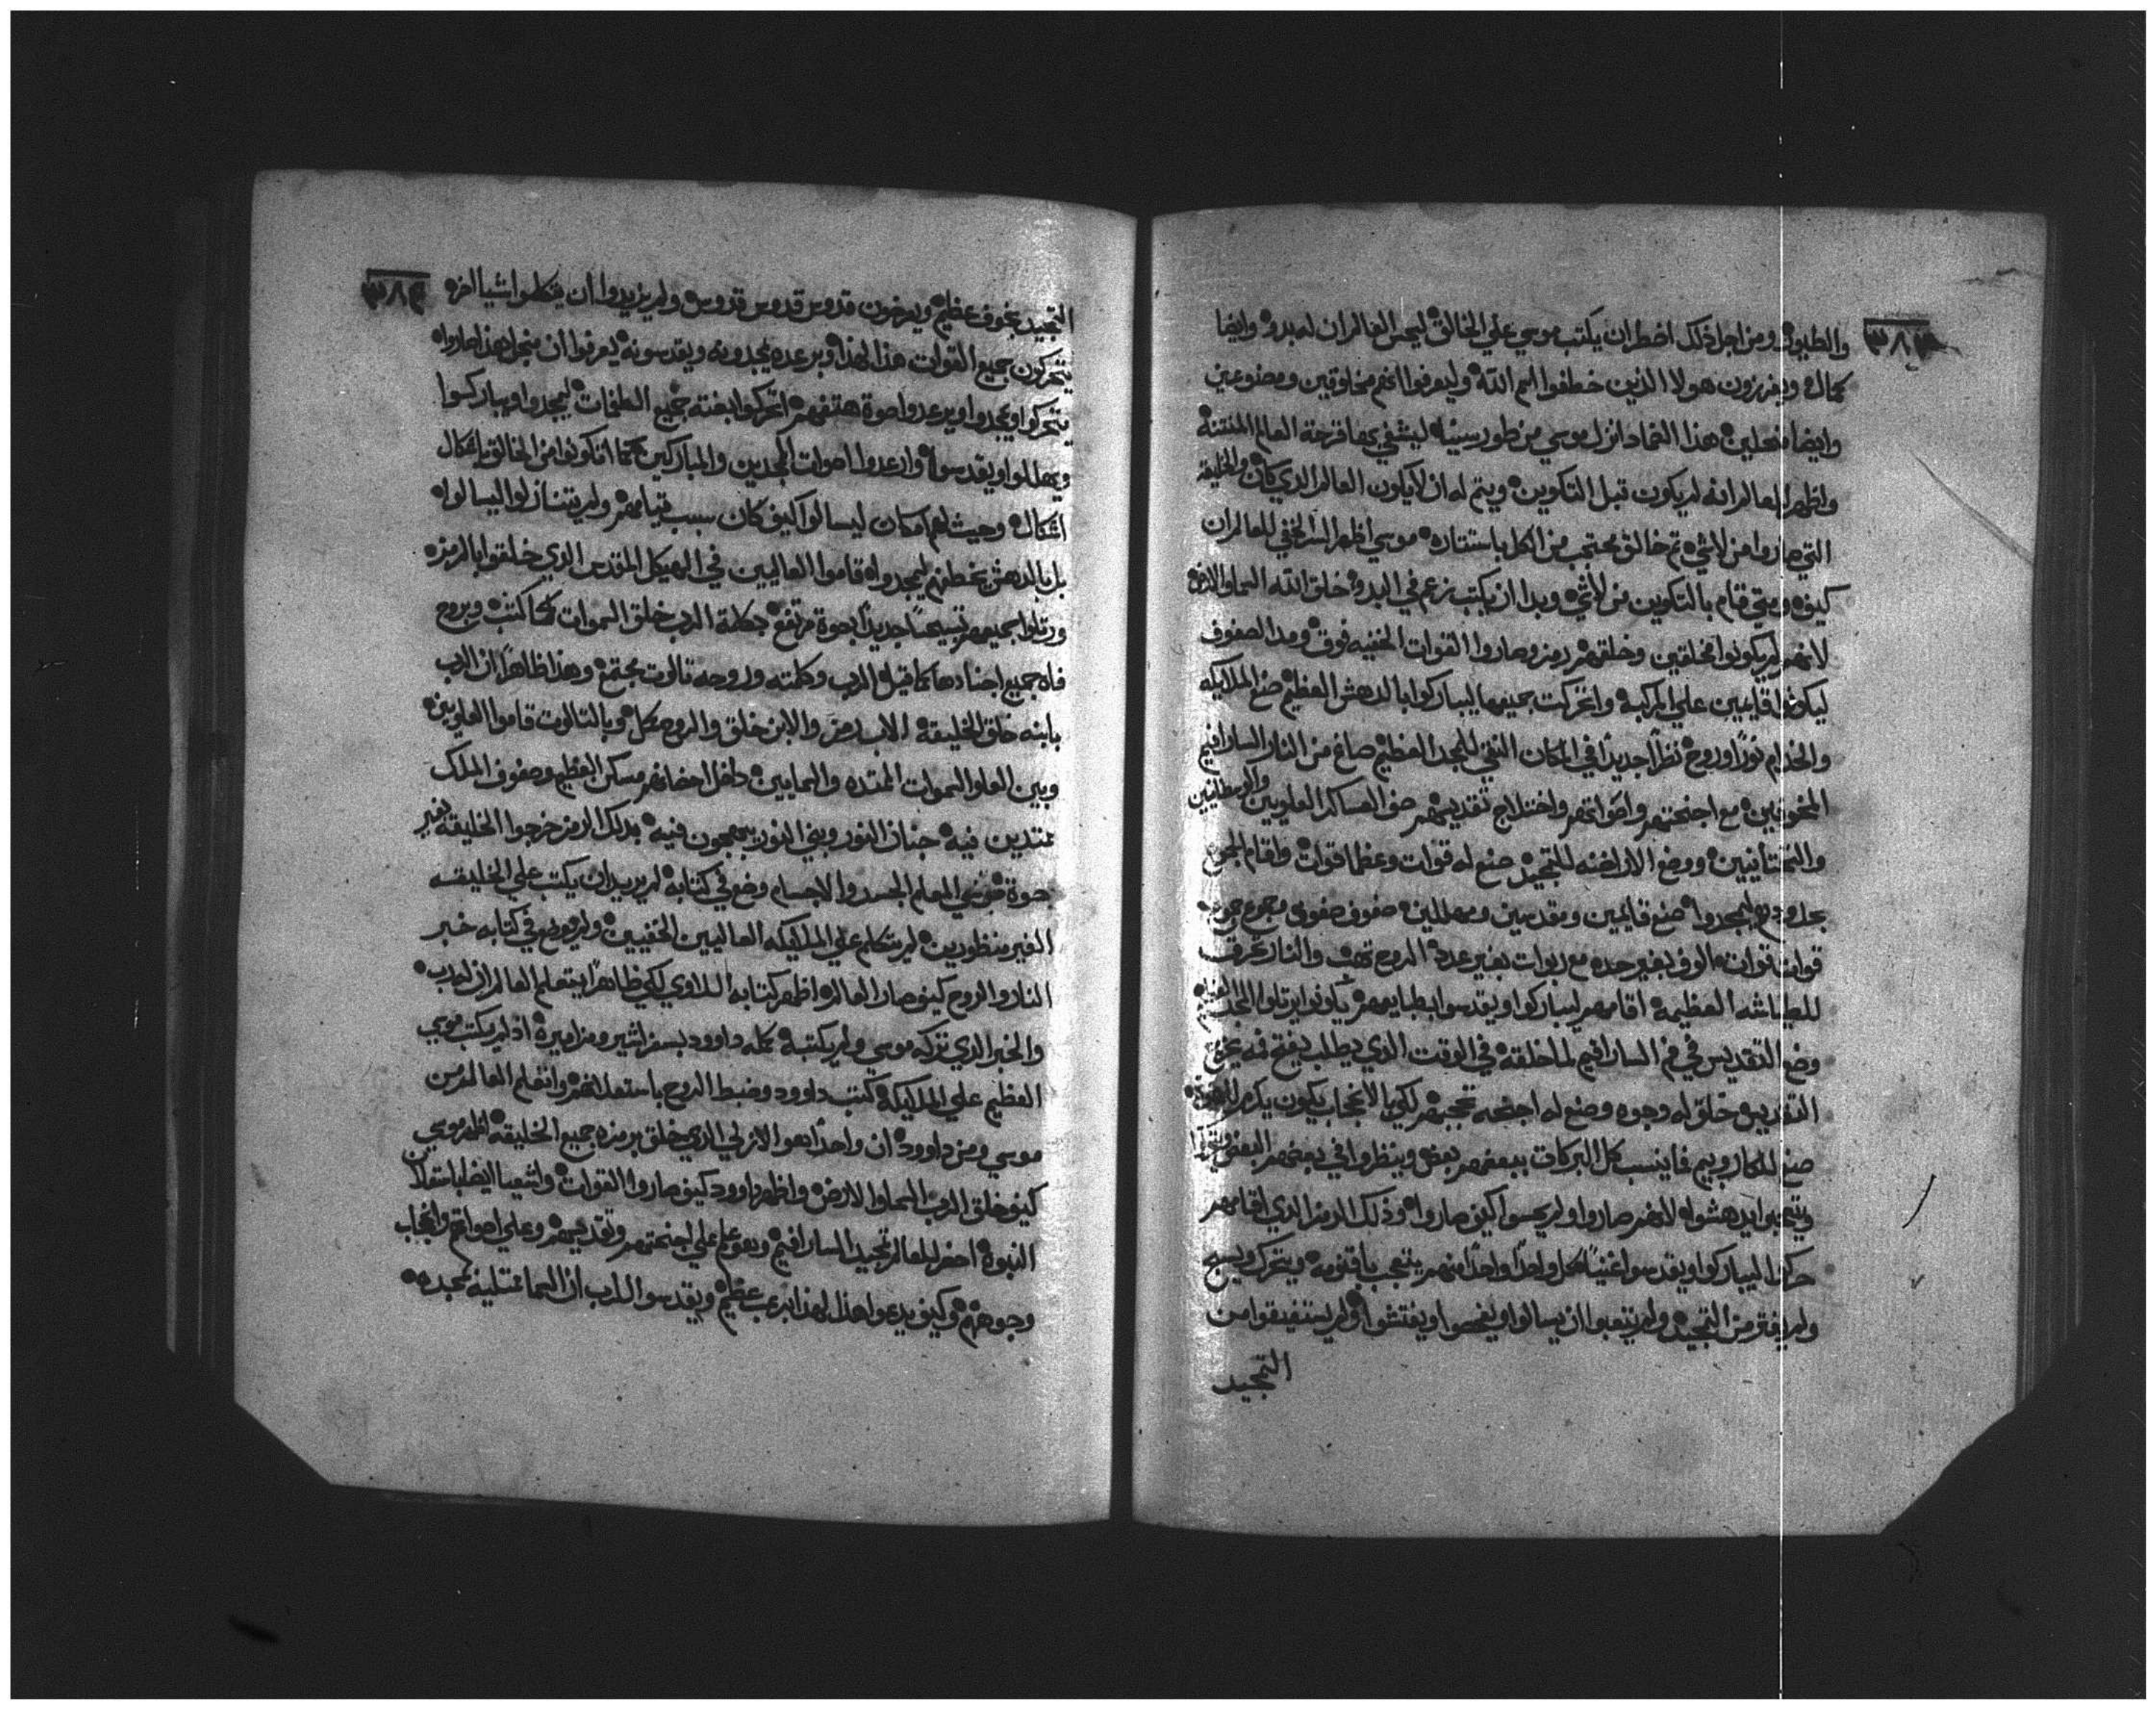 ٣٨٣
والطبوع ومن اجل ذلك اضطر ان يكتب موسي علي الخالق ليحس العالم ان له بدو وايضا
كمال ويفرزون هولا الذين خطفوا اسم الله وليعرفوا انهم مخلوقين ومصنوعين
وايضا منحلين هذا الضماد انزل موسي من طور سينا ليشفي بها قرحة العالم المنتنة
واظهر للعالم انه لم يكون قبل التكوين ويتم له ان لا يكون العالم الذي كان والخليقه
التي صاروا من لاشي تم خالق محتجب من الكل باستتاره موسي اظهر السر الخفي للعالم ان
كيف ومتي قام بالتكوين من لاشي وبدا ان يكتب زعم في البدو خلق الله السما والارض
لانهم لم يكونوا مخلقين وخلقهم رمز وصاروا القوات الخفيه فوق ومد الصفوف
ليكونوا قايمين علي المركبه واتحركت جميعها ليباركوا بالدهش العظيم صنع الملايكه
والخدام نورا وروح نظرا جديدا في المكان النقي للمجد العظيم صاغ من النار السارافيم
المخوفين مع اجنحتهم واصواتهم واختلاج تقديسهم صف العساكر العلويين والوسطانيين
والتحتانيين ووضع الالحنه للتمجيد صنع له قوات وعظما قوات واقام الجموع
ليمجدوا صنع قايمين ومقدسين ومهللين صفوف صفوف وجموع جموع
قوات قوات الوف بغير حده مع ربوات بغير عدد الروح تهف والنار تحرق
للطياشه العظيمة اقامهم ليباركوا ويقدسوا بطبايعهم يكونوا يرتلوا المجد
وضع التقديس في فم السارافيم لما خلقه في الوقت الذي يطلب يفتح فمه يخرج
التقديس خلق له وجوه وصنع له اجنحه تحجبهم لكي الانحجاب يكون يكرم
صنع للكاروبيم فاينسب كل البركات ببعضهم بعض وينظروا في بعضهم البعض
ويتعجبوا يدهشوا لانهم صاروا ولم يحسوا كيف صاروا وذلك الرمز الذي اقامهم
حركوا ليباركوا ويقدسوا غنيا كل واحدا واحدا منهم يتعجب باقنومه ويتحرك ويسبح
ولم يفتر من التمجيد ولم يتعبوا ان يسالوا ويفحصوا ويفتشوا ولم يستفيقوا من
التمجيد
٣٨٤
التمجيد بخوف عظيم ويصرخون قدوس قدوس قدوس ولم يزيدوا ان يتكلموا شيا اخر
يتحركون جميع القوات هذا لهذا وبرعده يمجدونه ويقدسونه يعرفوا ان من اجل هذا صاروا
يتحركوا ويمجدوا ويرعدوا صوة هتفهم اتحركوا بغته جميع الطغمات ليمجدوا ويباركوا
ويهللوا ويقدسوا وارعدوا اصوات الممجدين والمباركين كما اتكونوا من الخالق باشكال
اشكال وحيث لهم امكان ليسالوا كيف كان سبب قيامهم ولم يتنازلوا ليسالوا
بل بالدهش يخطفهم ليمجدوا قاموا العاليين في الهيكل المقدس الذي خلقوا بالرمز
ورتلوا جميعهم تسبيحا جديدا بصوة مرتفع بكلمة الرب خلق السموات كما كتب وبروح
فاه جميع اجنادها كما قيل الرب وكلمته وروحه ثالوث مجتمع وهذا ظاهرا ان الرب
بابنه خلق الخليقة الاب رمز والابن خلق والروح كمل وبالثالوث قاموا العلويين
وبين العلو السموات الممتده والسمايين داخل احضانهم مسكن العظيم وصفوف الملك
ممتدين فيه جنان النور وبني النور يبتهجون فيه بذلك الرمز خرجوا الخليقة بغير
صوة موسي المعلم الجسد والاجسام وضع في كتابه لم يريد ان يكتب علي الخليقه
الغير منظورين لم يتكلم علي الملايكه العاليين الخفيين ولم يوضع في كتابه خبر
النار والروح كيف صار العالم اظهر كتابه اللاوي لكي ظاهرا يتعلم العالم ان له رب
والخبر الذي تركه موسي ولم يكتبه كمله داوود بسفر اشير ومزاميره اذ لم يكتب موسي
العظيم علي الملايكة كتب داوود وضبط الروح باستعلانهم واتعلم العالم من
موسي ومن داوود ان واحدا هو الازلي الذي خلق برمزه جميع الخليقه اظهر موسي
كيف خلق الرب السما والارض واظهر داوود كيف صاروا القوات واشعيا ايضا
النبوة احضر للعالم تمجيد السارافيم وهو علم علي اجنحتهم وتقديسهم وعلي اصواتهم وانحجاب
وجوههم وكيف يدعوا هذا لهذا برعب عظيم ويقدسوا للرب ان السما ممتلية بمجده